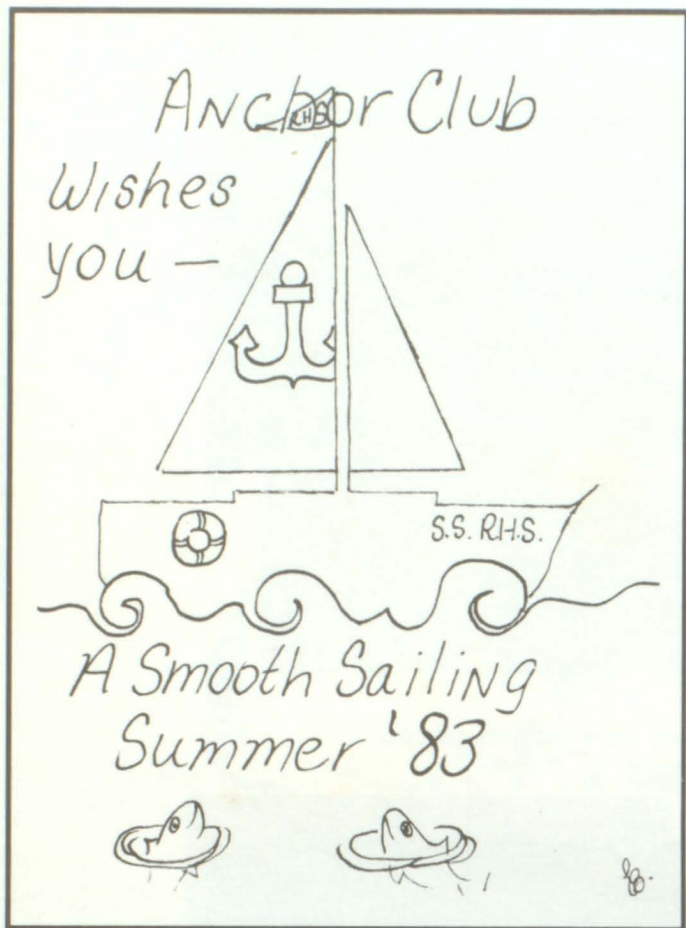 Anchor Club
RHS
Wishes
you —
S.S. R.H.S.
A Smooth Sailing
Summer '83